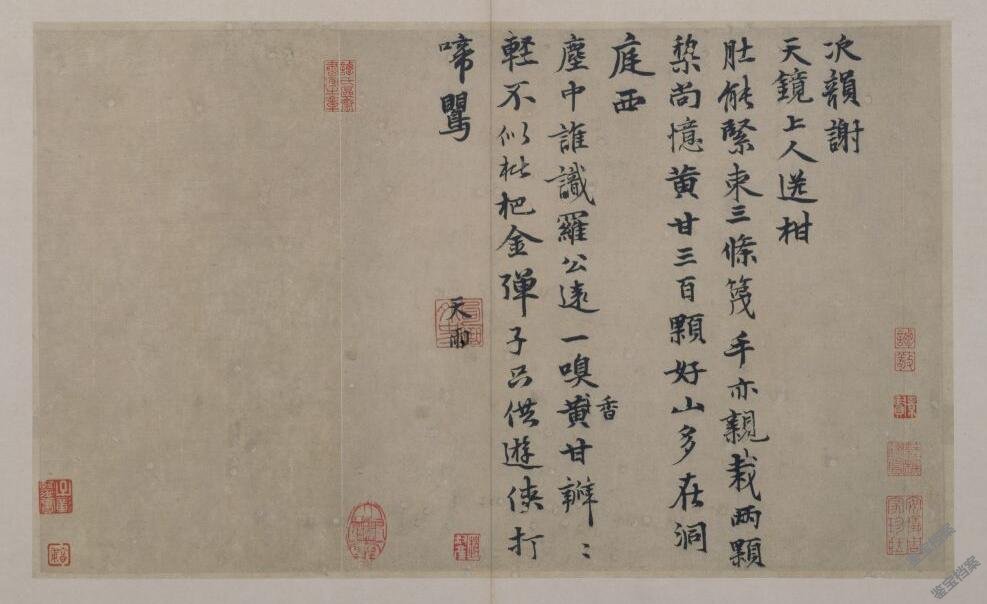 次韻謝
天鏡上人送柑
肚能緊束三條篾手亦親栽兩顆
棃尚憶黄甘三百顆好山多在洞
庭西
塵中誰識羅公遠一嗅黄甘瓣〻
香
輕不似枇杷金彈子只供遊俠打
啼鶯
天雨
鉴宝档案
鉴宝档案